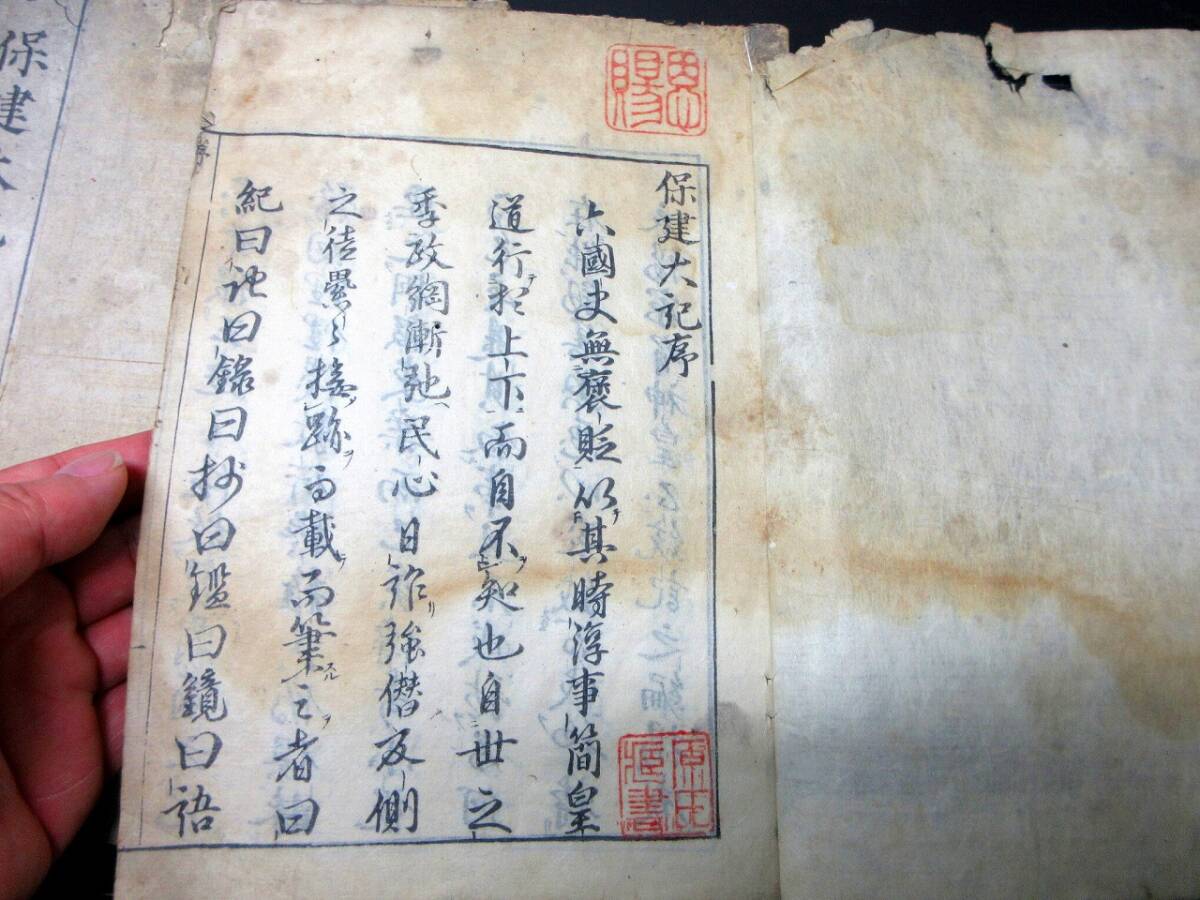 恩賜
保建大記序
六國史無褒貶以其時淳事簡皇
道行於上下而自不知也自世之
季政綱漸弛民心日詐強僭反側
之徒纍々接跡而載而筆之者曰
紀曰記曰錄曰抄曰鑑曰鏡曰語
原氏
藏書
保建大